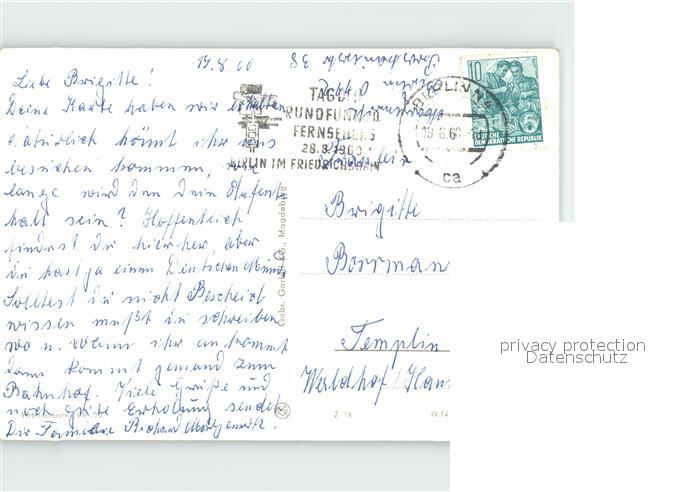 19.8.60
Liebe Brigitte!
Deine Karte haben wir erhalten
natürlich könnt ihr uns
besuchen kommen, wie
lange wird den Dein Aufent
halt sein? Hoffentlich
findest du hierher, aber
du hast ja einen Deutschen Mund
Solltest du nicht Bescheid
wissen mußt du schreiben
wo u. wann ihr ankommt
dann kommt jemand zum
Bahnhof. Viele Grüße und
noch gute Erholung sendet
Dir Familie Richard
TAG DES
RUNDFUNKS U.
FERNSEHENS
28.8.1960
BERLIN IM FRIEDRICHSHAIN
BERLIN N4
19.8.60
ca
10
5
DEUTSCHE
DEMOKRATISCHE REPUBLIK
Brigitte
Borrman
Templin
Werldhof/Haus
Gebr. Garloff KG., Magdeburg
Z 18
IV-14
privacy protection
Datenschutz